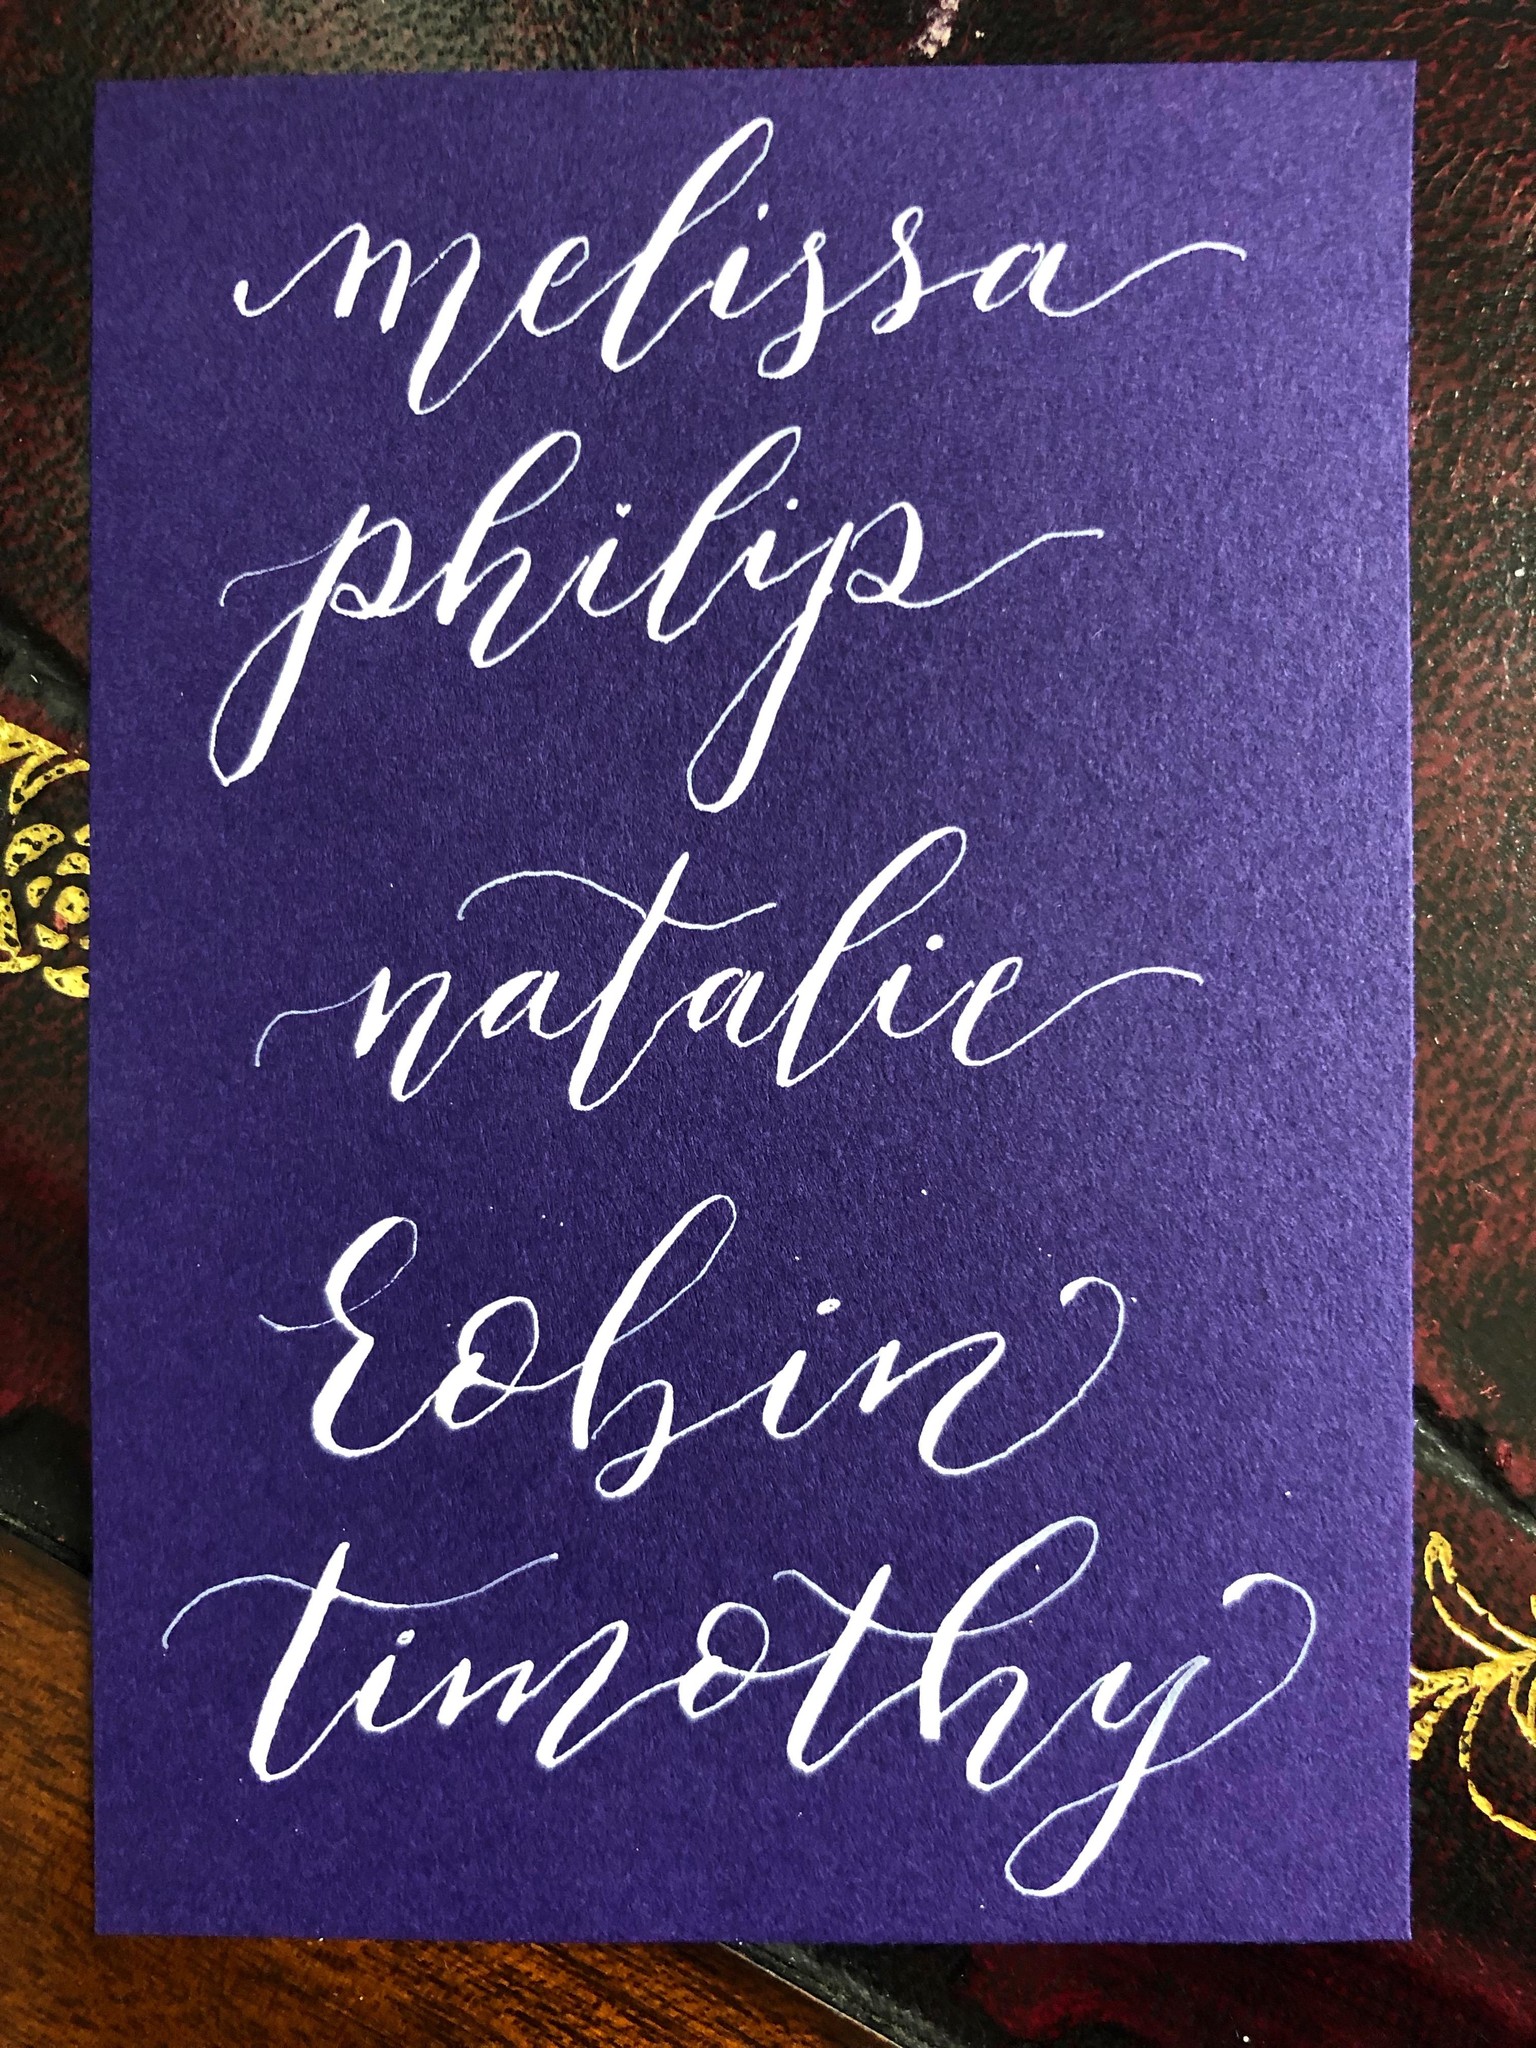 melissa
philip
natalie
robin
timothy